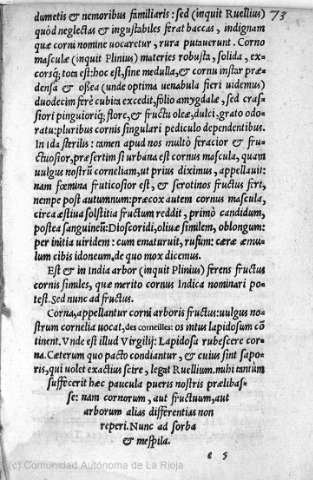 dumetis & nemoribus familiaris: sed (inquit Ruellius) 73
quòd neglectas & ingustabiles ferat baccas, indignam
quæ corni nomine uocaretur, rura putauerunt. Corno
masculæ (inquit Plinius) materies robusta, solida, ex-
corsq́; tota est: hoc est, sine medulla, & cornu instar præ-
densa & ossea (unde optima uenabula fieri uidemus)
duodecim ferè cubita excedit, folio amygdalæ, sed cras-
siori pinguioriq́;, flore, & fructu oleæ, dulci, grato odo-
ratu: pluribus cornis singulari pediculo dependentibus.
In ida sterilis: tamen apud nos multò feracior & fru-
ctuosior, præsertim si urbana est cornus mascula, quam
uulgus nostrũ corneliam, ut prius diximus, appellauit:
nam fœmina fruticosior est, & serotinos fructus fert,
nempe post autumnum: præcox autem cornus mascula,
circa æstiua solstitia fructum reddit, primò candidum,
postea sanguineũ: Dioscoridi, oliuæ similem, oblongum:
per initia uiridem: cum ematuruit, rufum: ceræ æmu-
lum cibis idoneum, de quo mox dicemus.
Est & in India arbor (inquit Plinius) ferens fructus
cornis similes, quæ merito cornus Indica nominari po-
test. Sed nunc ad fructus.
Corna, appellantur corni arboris fructus: uulgus no-
strum cornelia uocat, des corneilles: os intus lapidosum cõ
tinent. Vnde est illud Virgilij: Lapidosa rubescere cor-
na. Cæterum quo pacto condiantur, & cuius sint sapo-
ris, qui uolet exactius scire, legat Ruellium. mihi tantùm
suffecerit hæc paucula pueris nostris prælibas-
se: nam cornorum, aut fructuum, aut
arborum alias differentias non
reperi. Nunc ad sorba
& mespila.
e 5
(c) Comunidad Autónoma de La Rioja